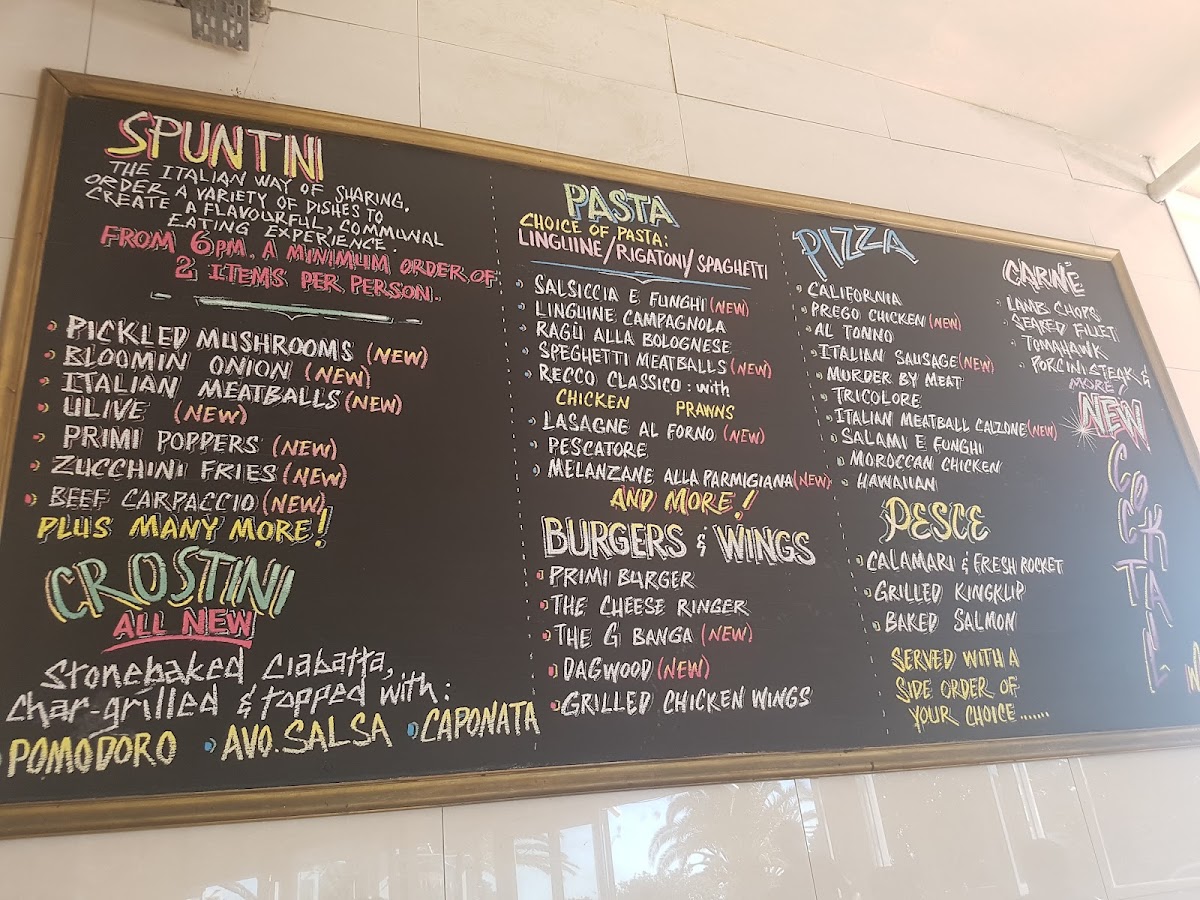 SPUNTINI
THE ITALIAN WAY OF SHARING.
ORDER A VARIETY OF DISHES TO
CREATE A FLAVOURFUL, COMMUNAL
EATING EXPERIENCE.
FROM 6PM, A MINIMUM ORDER OF
2 ITEMS PER PERSON.
PICKLED MUSHROOMS (NEW)
BLOOMIN ONION (NEW)
ITALIAN MEATBALLS (NEW)
ULIVE (NEW)
PRIMI POPPERS (NEW)
ZUCCHINI FRIES (NEW)
BEEF CARPACCIO (NEW)
PLUS MANY MORE!
CROSTINI
ALL NEW
Stonebaked Ciabatta,
char-grilled & topped with:
POMODORO AVO.SALSA CAPONATA
PASTA
CHOICE OF PASTA:
LINGUINE/RIGATONI/SPAGHETTI
SALSICCIA E FUNGHI (NEW)
LINGUINE CAMPAGNOLA
RAGÙ ALLA BOLOGNESE
SPEGHETTI MEATBALLS (NEW)
RECCO CLASSICO: with
CHICKEN PRAWNS
LASAGNE AL FORNO (NEW)
PESCATORE
MELANZANE ALLA PARMIGIANA (NEW)
AND MORE!
BURGERS & WINGS
PRIMI BURGER
THE CHEESE RINGER
THE G BANGA (NEW)
DAGWOOD (NEW)
GRILLED CHICKEN WINGS
PIZZA
CALIFORNIA
PREGO CHICKEN (NEW)
AL TONNO
ITALIAN SAUSAGE (NEW)
MURDER BY MEAT
TRICOLORE
ITALIAN MEATBALL CALZONE (NEW)
SALAMI E FUNGHI
MOROCCAN CHICKEN
HAWAIIAN
PESCE
CALAMARI & FRESH ROCKET
GRILLED KINGKLIP
BAKED SALMON
SERVED WITH A
SIDE ORDER OF
YOUR CHOICE......
CARNÉ
LAMB CHOPS
SEARED FILLET
TOMAHAWK
PORCINI STEAK &
MORE!
NEW
COCKTAIL